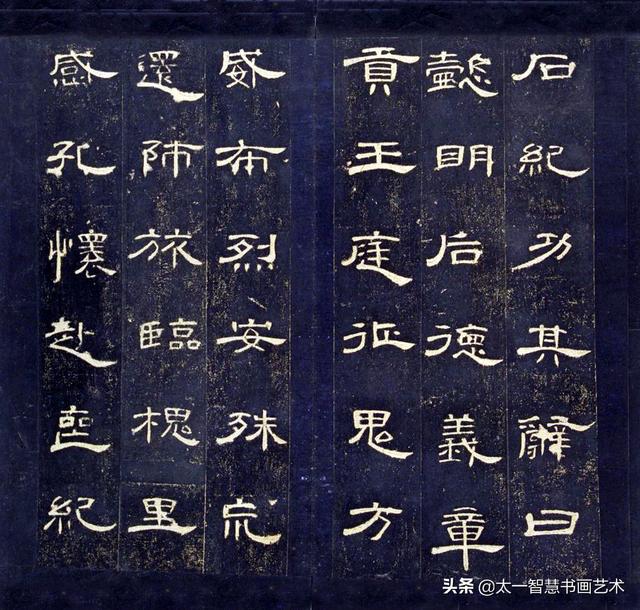 石紀功其辭曰
懿明后德義章
貢王庭征鬼方
威布烈安殊巟
還師旅臨槐里
感孔懷赴喪紀
头条 @太一智慧书画艺术